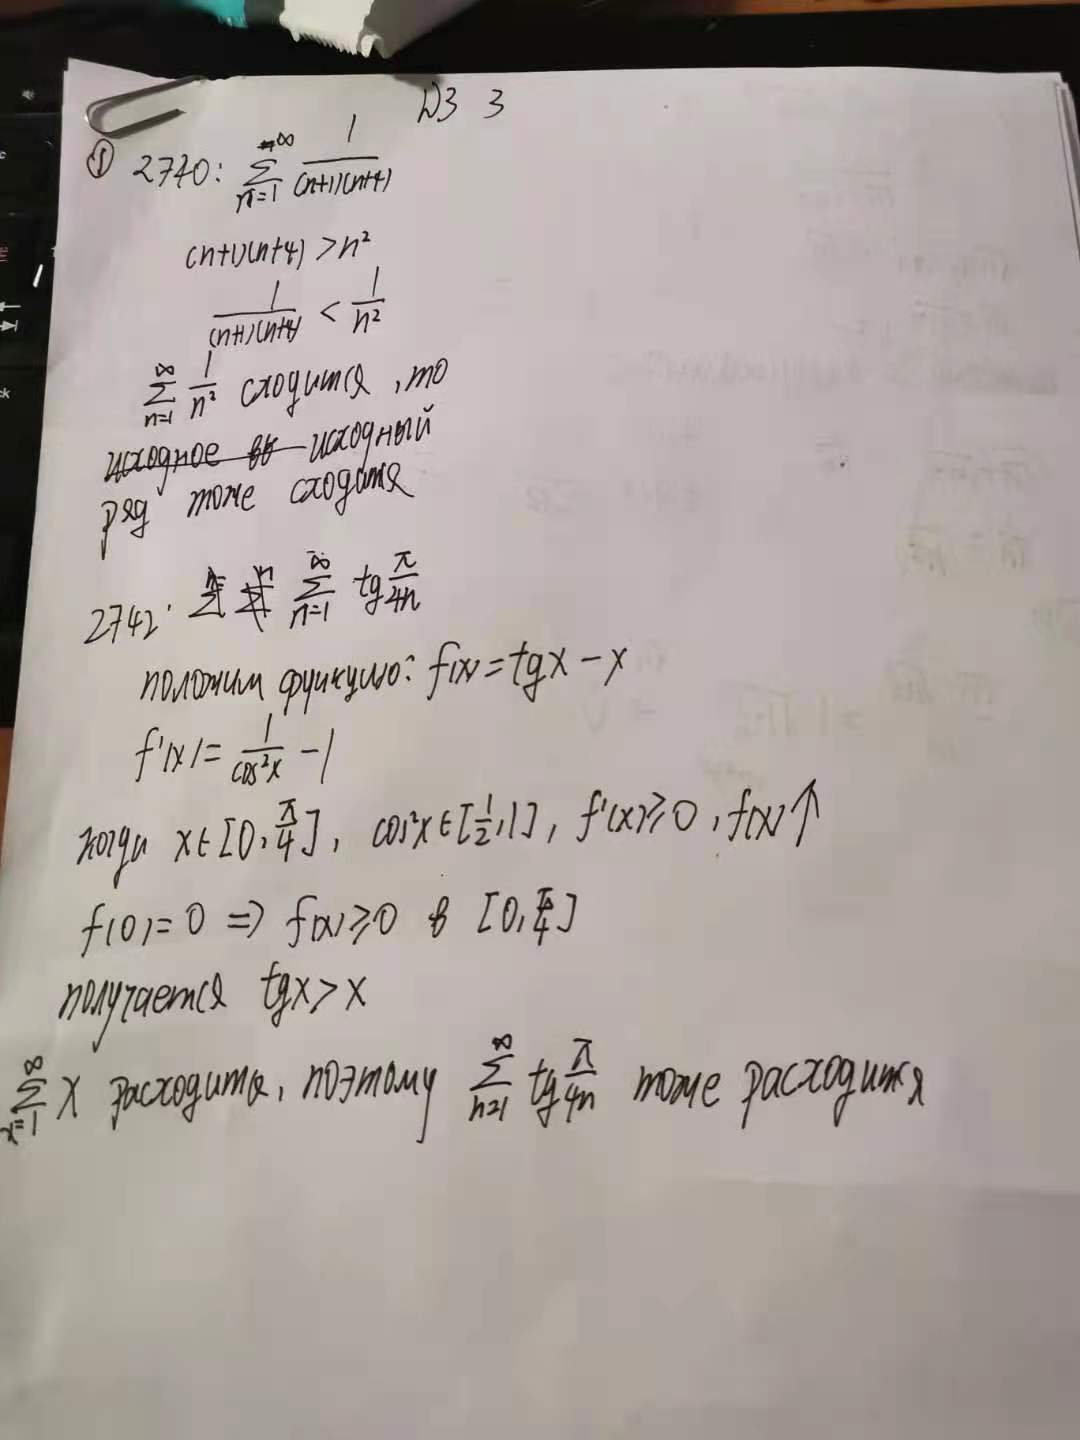 ДЗ 3
① 2740: ∑_{n=1}^{∞} 1/((n+1)(n+4))
(n+1)(n+4) > n²
1/((n+1)(n+4)) < 1/n²
∑_{n=1}^{∞} 1/n² сходится, то
исходное исходный
ряд тоже сходится
2742: ∑_{n=1}^{∞} tg π/4n
положим функцию: f(x) = tgx − x
f'(x) = 1/cos²x − 1
когда x∈[0, π/4], cos²x∈[1/2, 1], f'(x) ⩾ 0, f(x)↑
f(0) = 0 ⇒ f(x) ⩾ 0 в [0, π/4]
получается tgx > x
∑_{x=1}^{∞} x расходится, поэтому ∑_{n=1}^{∞} tg π/4n тоже расходится